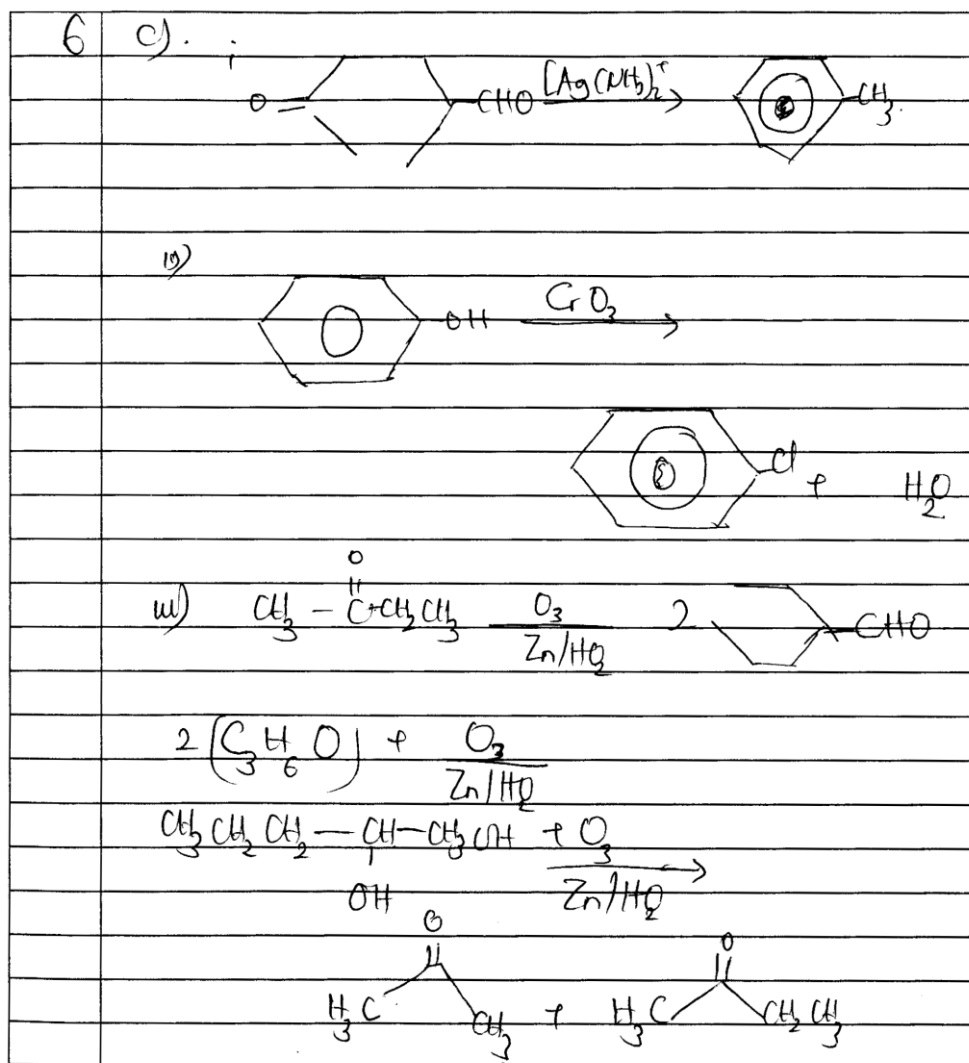 6 c). i
O = CHO [Ag(NH3)2]+ CH3.
ii)
OH CrO3
Cl + H2O
O
iii) CH3 - C - CH2CH3 O3 2 CHO
Zn/H2O
2 (C3H6O) + O3
Zn/H2O
CH3CH2CH2 — CH — CH3OH + O3
OH Zn/H2O
O O
H3C CH3 + H3C CH2CH3